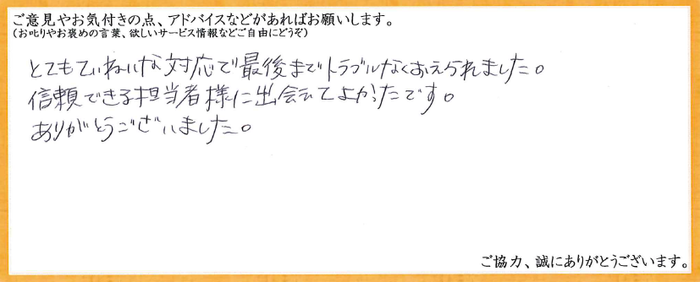 ご意見やお気付きの点、アドバイスなどがあればお願いします。
(お叱りやお褒めの言葉、欲しいサービス情報などご自由にどうぞ)
とてもていねいな対応で最後までトラブルなくおえられました。
信頼できる担当者様に出会えてよかったです。
ありがとうございました。
ご協力、誠にありがとうございます。